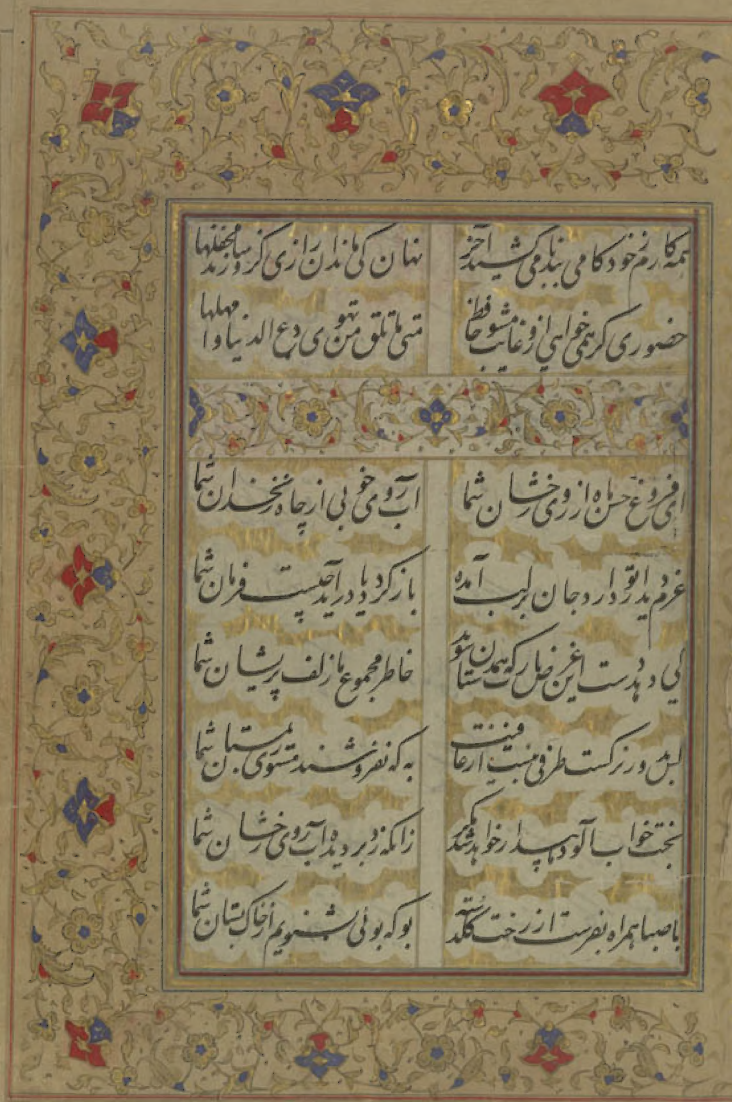 همه کارم ز خود کامی ببدنامی کشید آخر نهان کی ماند آن رازی کزو سازند محفلها
حضوری گر همی خواهی ازو غایب مشو حافظ متی ما تلق من تهوی دع الدنیا و اهملها
ای فروغ حسن ماه از روی رخشان شما آب روی خوبی از چاه زنخدان شما
عزم دیدار تو دارد جان بر لب آمده باز گردد یا درآید چیست فرمان شما
کی دهد دست این غرض یا رب که همدستان شوند خاطر مجموع ما زلف پریشان شما
کس بدور نرگست طرفی نبست از عافیت به که نفروشند مستوری بمستان شما
بخت خواب آلود ما بیدار خواهد شد مگر زانکه زد بر دیده آب روی رخشان شما
با صبا همراه بفرست از رخت گلدسته بو که بوئی بشنویم از خاک بستان شما